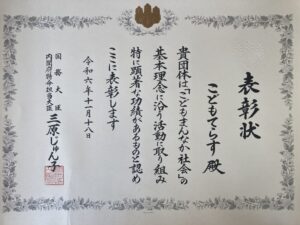 表彰状
こどもてらす 殿
貴団体は、「こどもまんなか社会」の
基本理念に沿り活動に取り組み
特に顕著な功績があるものと認め
ここに表彰します
令和六年十一月十八日
国務大臣
内閣府特命担当大臣
三原じゅん子